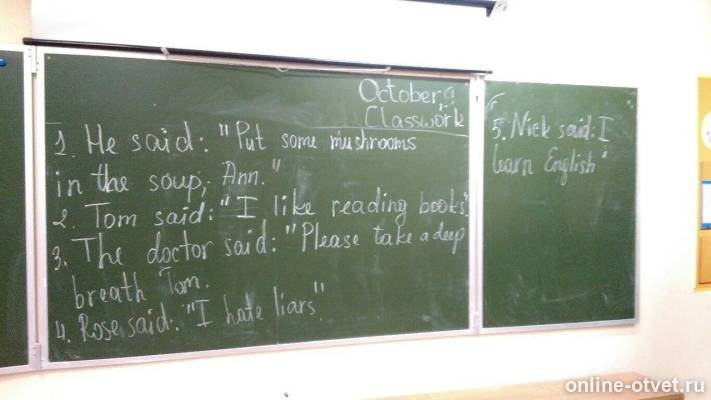 October 9
Classwork
1. He said: "Put some mushrooms
in the soup, Ann."
2. Tom said: "I like reading books".
3. The doctor said: "Please take a deep
breath Tom.
4. Rose said: "I hate liars".
5. Nick said: I
learn English"
online-otvet.ru